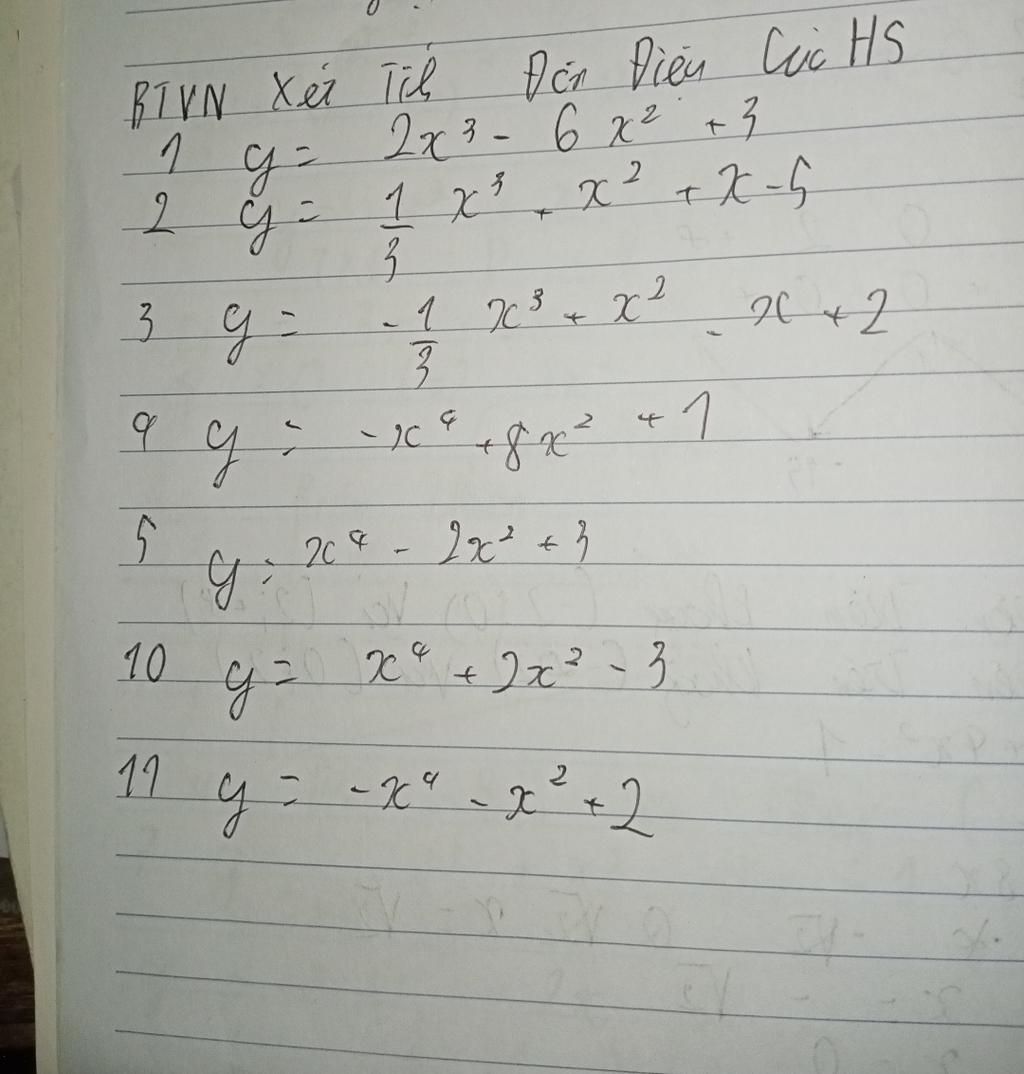 BTVN Xét Tíh Đơn Điệu Các HS
1 y = 2x³ - 6x² + 3
2 y = 1/3 x³ + x² + x - 5
3 y = -1/3 x³ + x² - x + 2
4 y = -x⁴ + 8x² + 1
5 y = x⁴ - 2x² + 3
10 y = x⁴ + 2x² - 3
11 y = -x⁴ - x² + 2